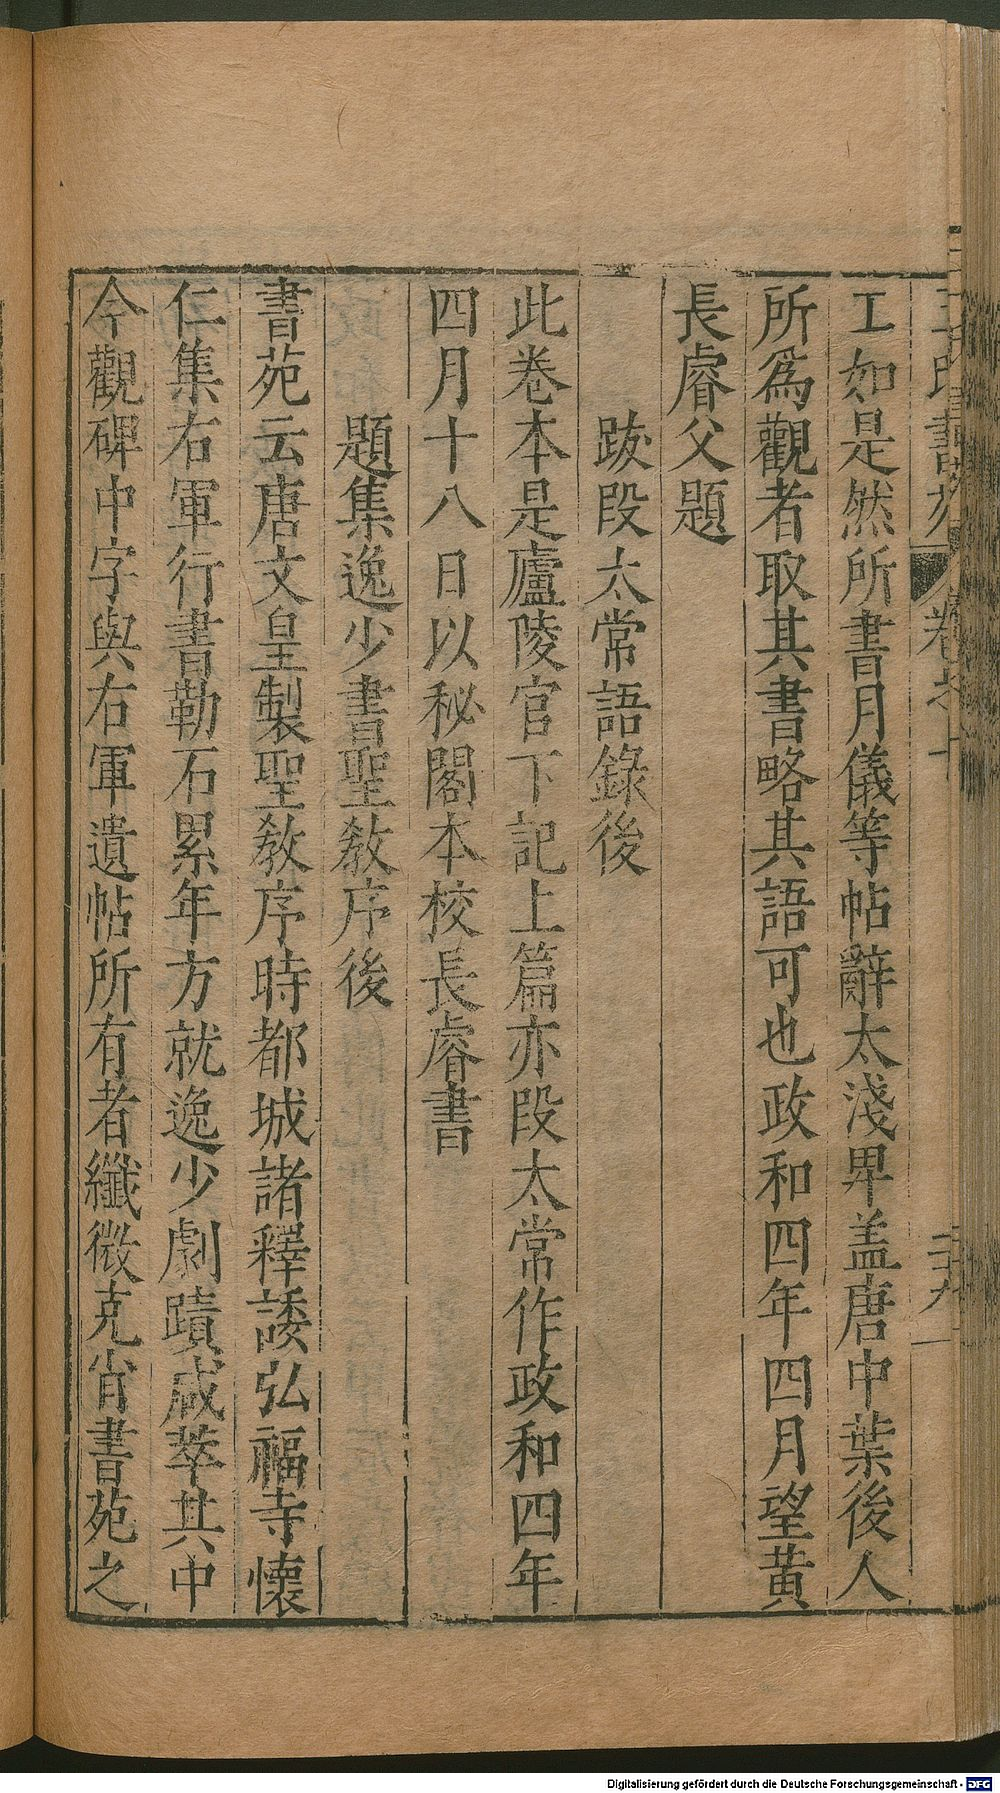 工如是然所書月儀等帖辭太淺卑盖唐中葉後人
所爲觀者取其書略其語可也政和四年四月望黄
長睿父題
跋段太常語錄後
此卷本是廬陵官下記上篇亦段太常作政和四年
四月十八日以秘閣本校長睿書
題集逸少書聖教序後
書苑云唐文皇製聖教序時都城諸釋諉弘福寺懷
仁集右軍行書勒石累年方就逸少劇蹟咸萃其中
今觀碑中字與右軍遺帖所有者纖微克肖書苑之
Digitalisierung gefördert durch die Deutsche Forschungsgemeinschaft - DFG